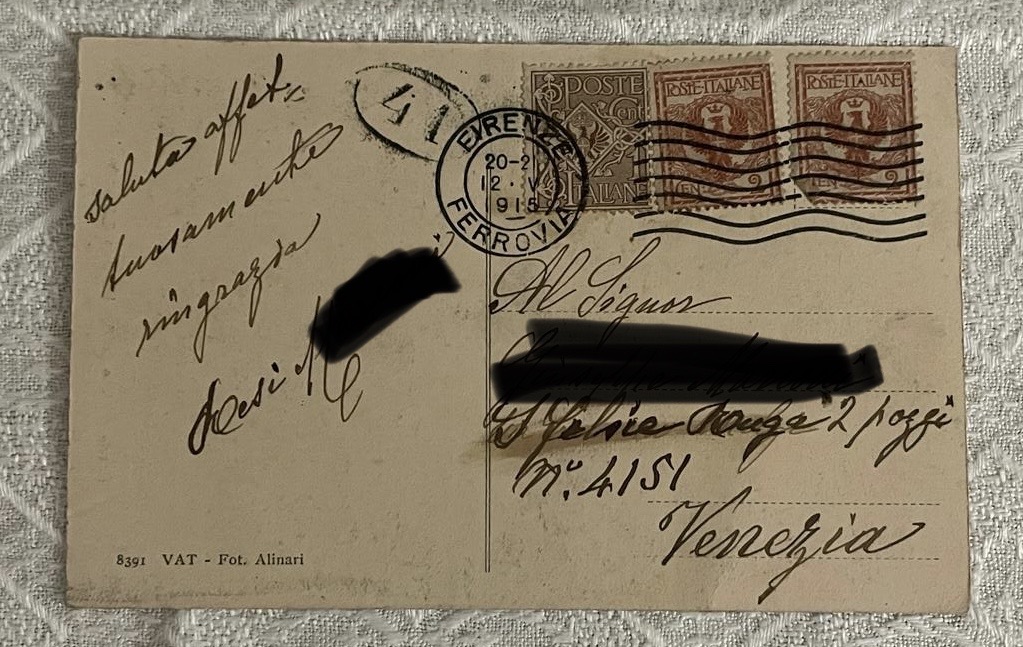 saluta affet-
tuosamente
ringrazia
41
FIRENZE
20-2
12 · V
915
FERROVIA
POSTE
Cent
ITALIANE
POSTE·ITALIANE
CENT 2
POSTE·ITALIANE
CENT 2
Al Signor
2 pozzi
N.º 4151
Venezia
8391 VAT - Fot. Alinari